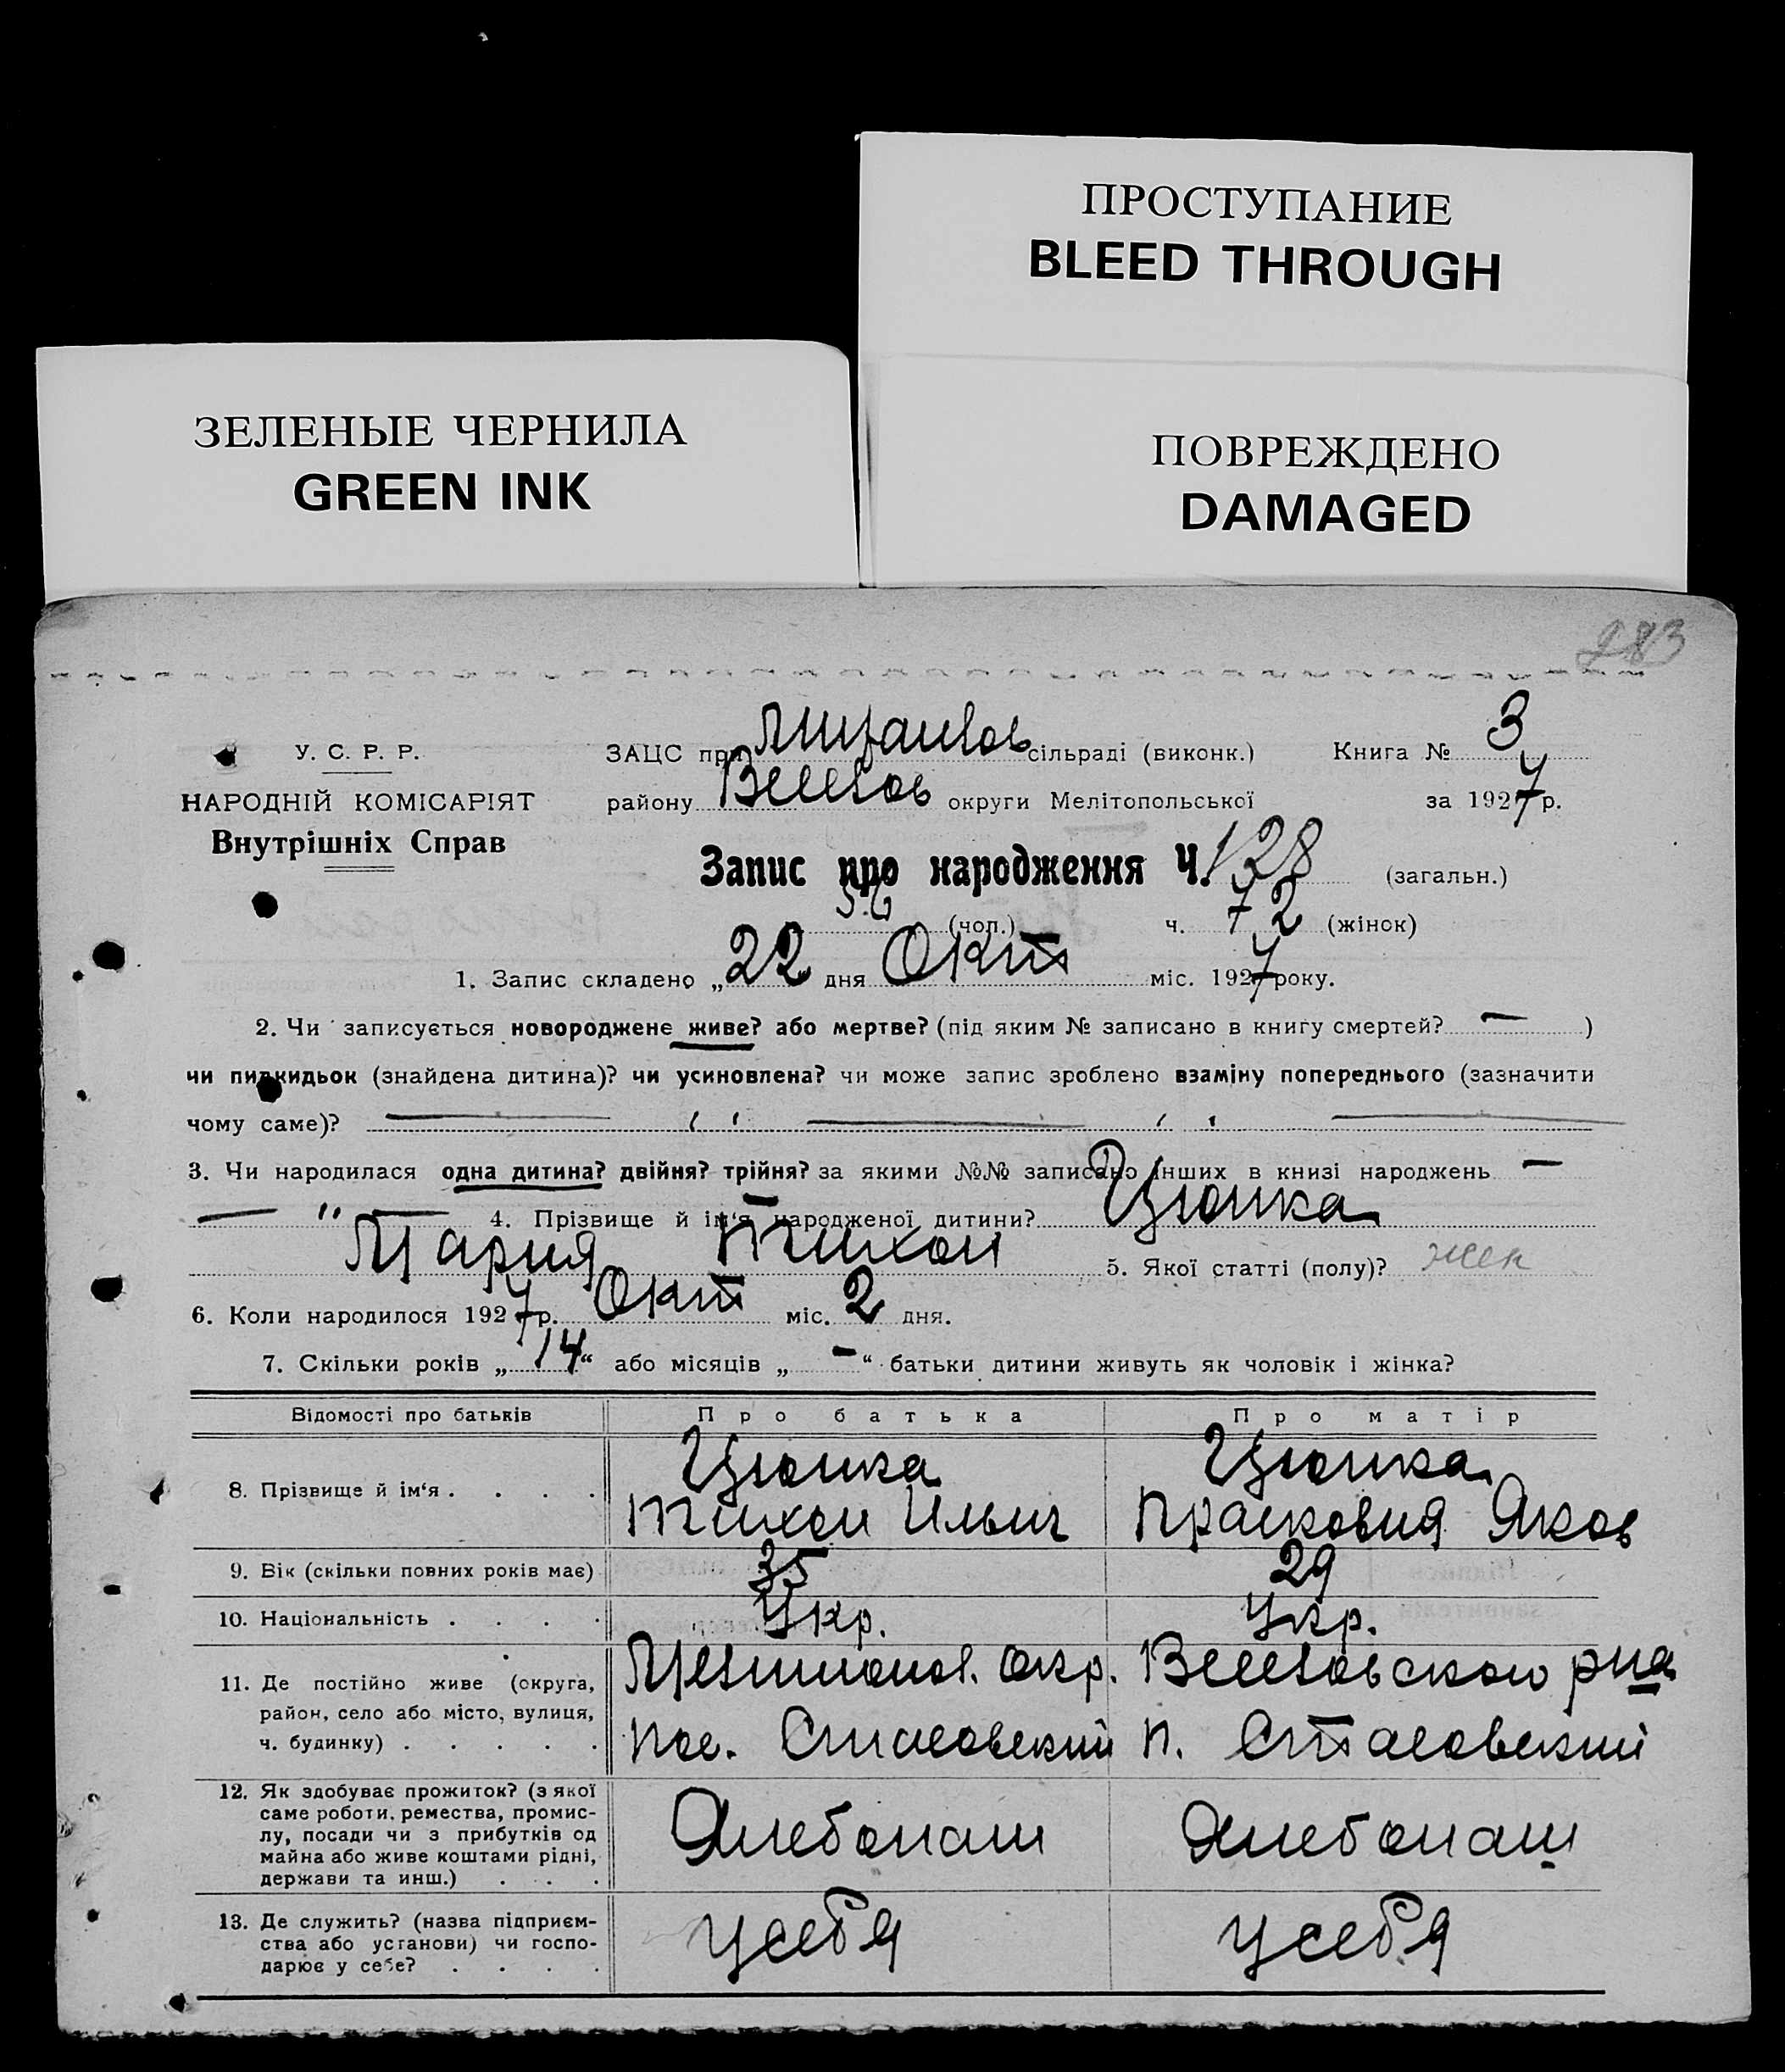 ПРОСТУПАНИЕ
BLEED THROUGH
ЗЕЛЕНЫЕ ЧЕРНИЛА
GREEN INK
ПОВРЕЖДЕНО
DAMAGED
283
У. С. Р. Р.
НАРОДНІЙ КОМІСАРІЯТ
Внутрішніх Справ
ЗАЦС при сільраді (виконк.) Книга № 3
району Веселов округи Мелітопольської за 1927 р.
Запис про народження Ч. 128 (загальн.)
56 (чол.) ч. 72 (жінок)
1. Запис складено „22 дня Окт міс. 1927 року.
2. Чи записується новороджене живе? або мертве? (під яким № записано в книгу смертей? — )
чи пидкидьок (знайдена дитина)? чи усиновлена? чи може запис зроблено взаміну попереднього (зазначити
чому саме)? — " — " —
3. Чи народилася одна дитина? двійня? трійня? за якими №№ записано інших в книзі народжень —
— " — 4. Прізвище й ім'я народженої дитини? Цюпка
Мария Тихон 5. Якої статті (полу)? жен
6. Коли народилося 1927 р. Окт міс. 2 дня.
7. Скільки років „ 14 “ або місяців „ — “ батьки дитини живуть як чоловік і жінка?
Відомості про батьків Про батька Про матір
8. Прізвище й ім'я . . . . Цюпка Тихон Ильич Цюпка Прасковия Яков
9. Вік (скільки повних років має) 35 29
10. Національність . . . . Укр. Укр.
11. Де постійно живе (округа, район, село або місто, вулиця, ч. будинку) . . . . . Мелитопол. окр. Веселовского рна
пос. Стасовский п. Стасовский
12. Як здобуває прожиток? (з якої саме роботи, ремества, промислу, посади чи з прибутків од майна або живе коштами рідні, держави та инш.) . . . Хлебопаш Хлебопаш
13. Де служить? (назва підприємства або установи) чи господарює у себе? . . . . у себя у себя